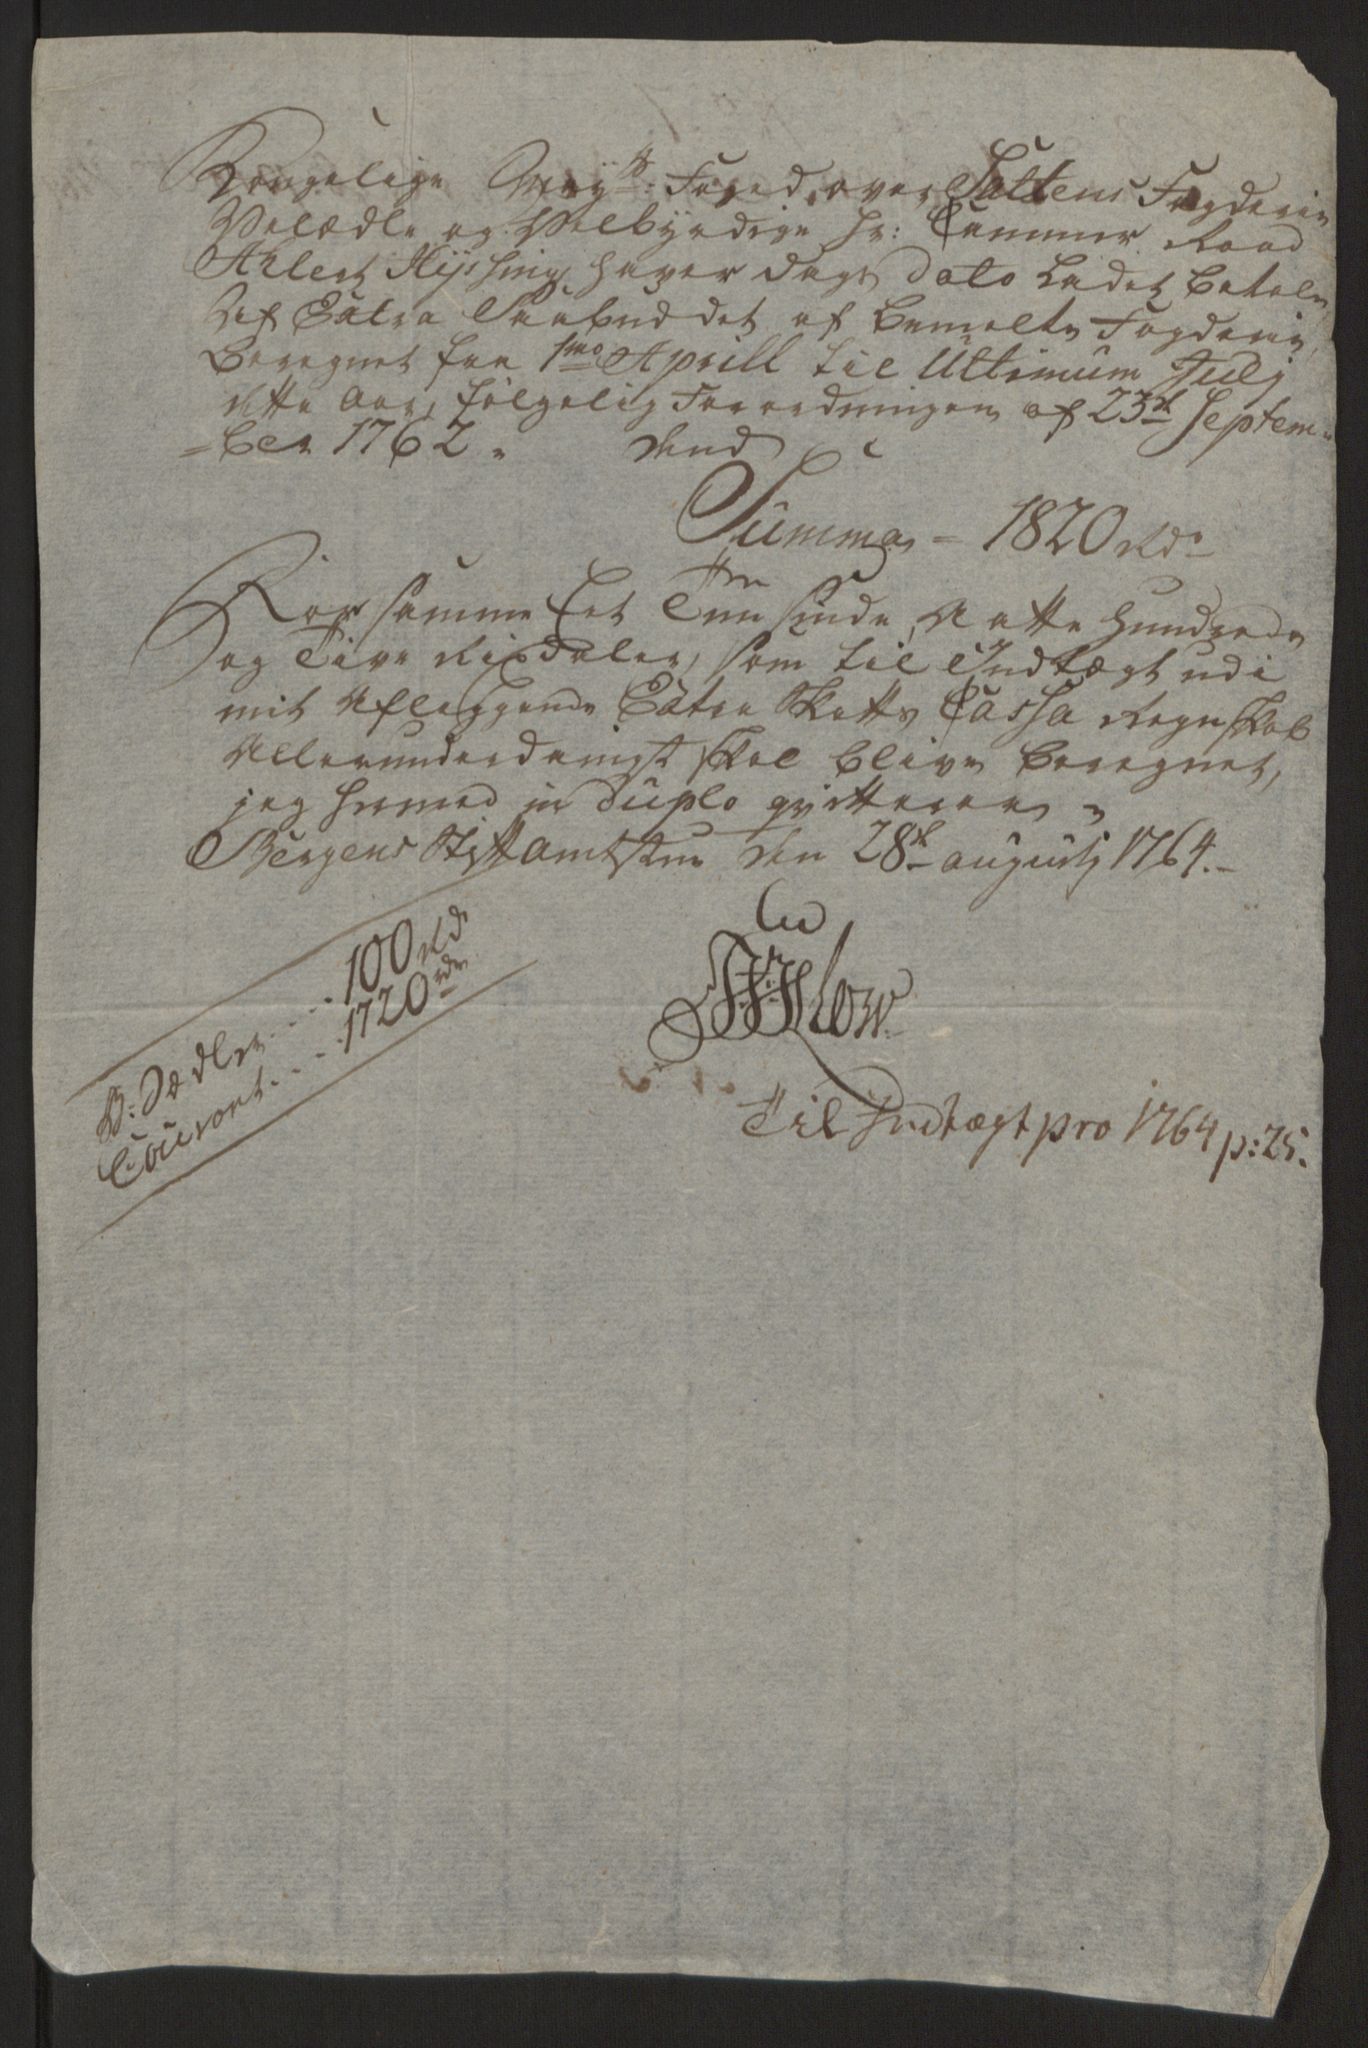 Kongelige Mayts: Foged over Saltens Fogderie
Velædle og Velbyrdige Hr: Cammer Raad
Ahlert Hysing haver dags dato Ladet betale
Af Extra Paabuddet af bemelte Fogderie,
beregnet fra 1mo Aprill til Ultimum Julij
dette Aar, følgelig Forordningen af 23de Septem-
-ber 1762. Arend
Summa = 1820 Rdr
For samme Eet Tusinde, Aatte Hundrede
og Tive Rixdaler, som til Indtægt udi
mit Aflæggende Extra Skatts Cassa Regnskab
Allerunderdanigst skal blive beregnet,
jeg hermed in Duplo qvitterer
Bergens Stiftamtstue den 28de augustj 1764.
B: Sedler . . . . 100 Rd
Courant . . . . 1720 rdr
Low.
Til Indtægt pro 1764 p: 25.